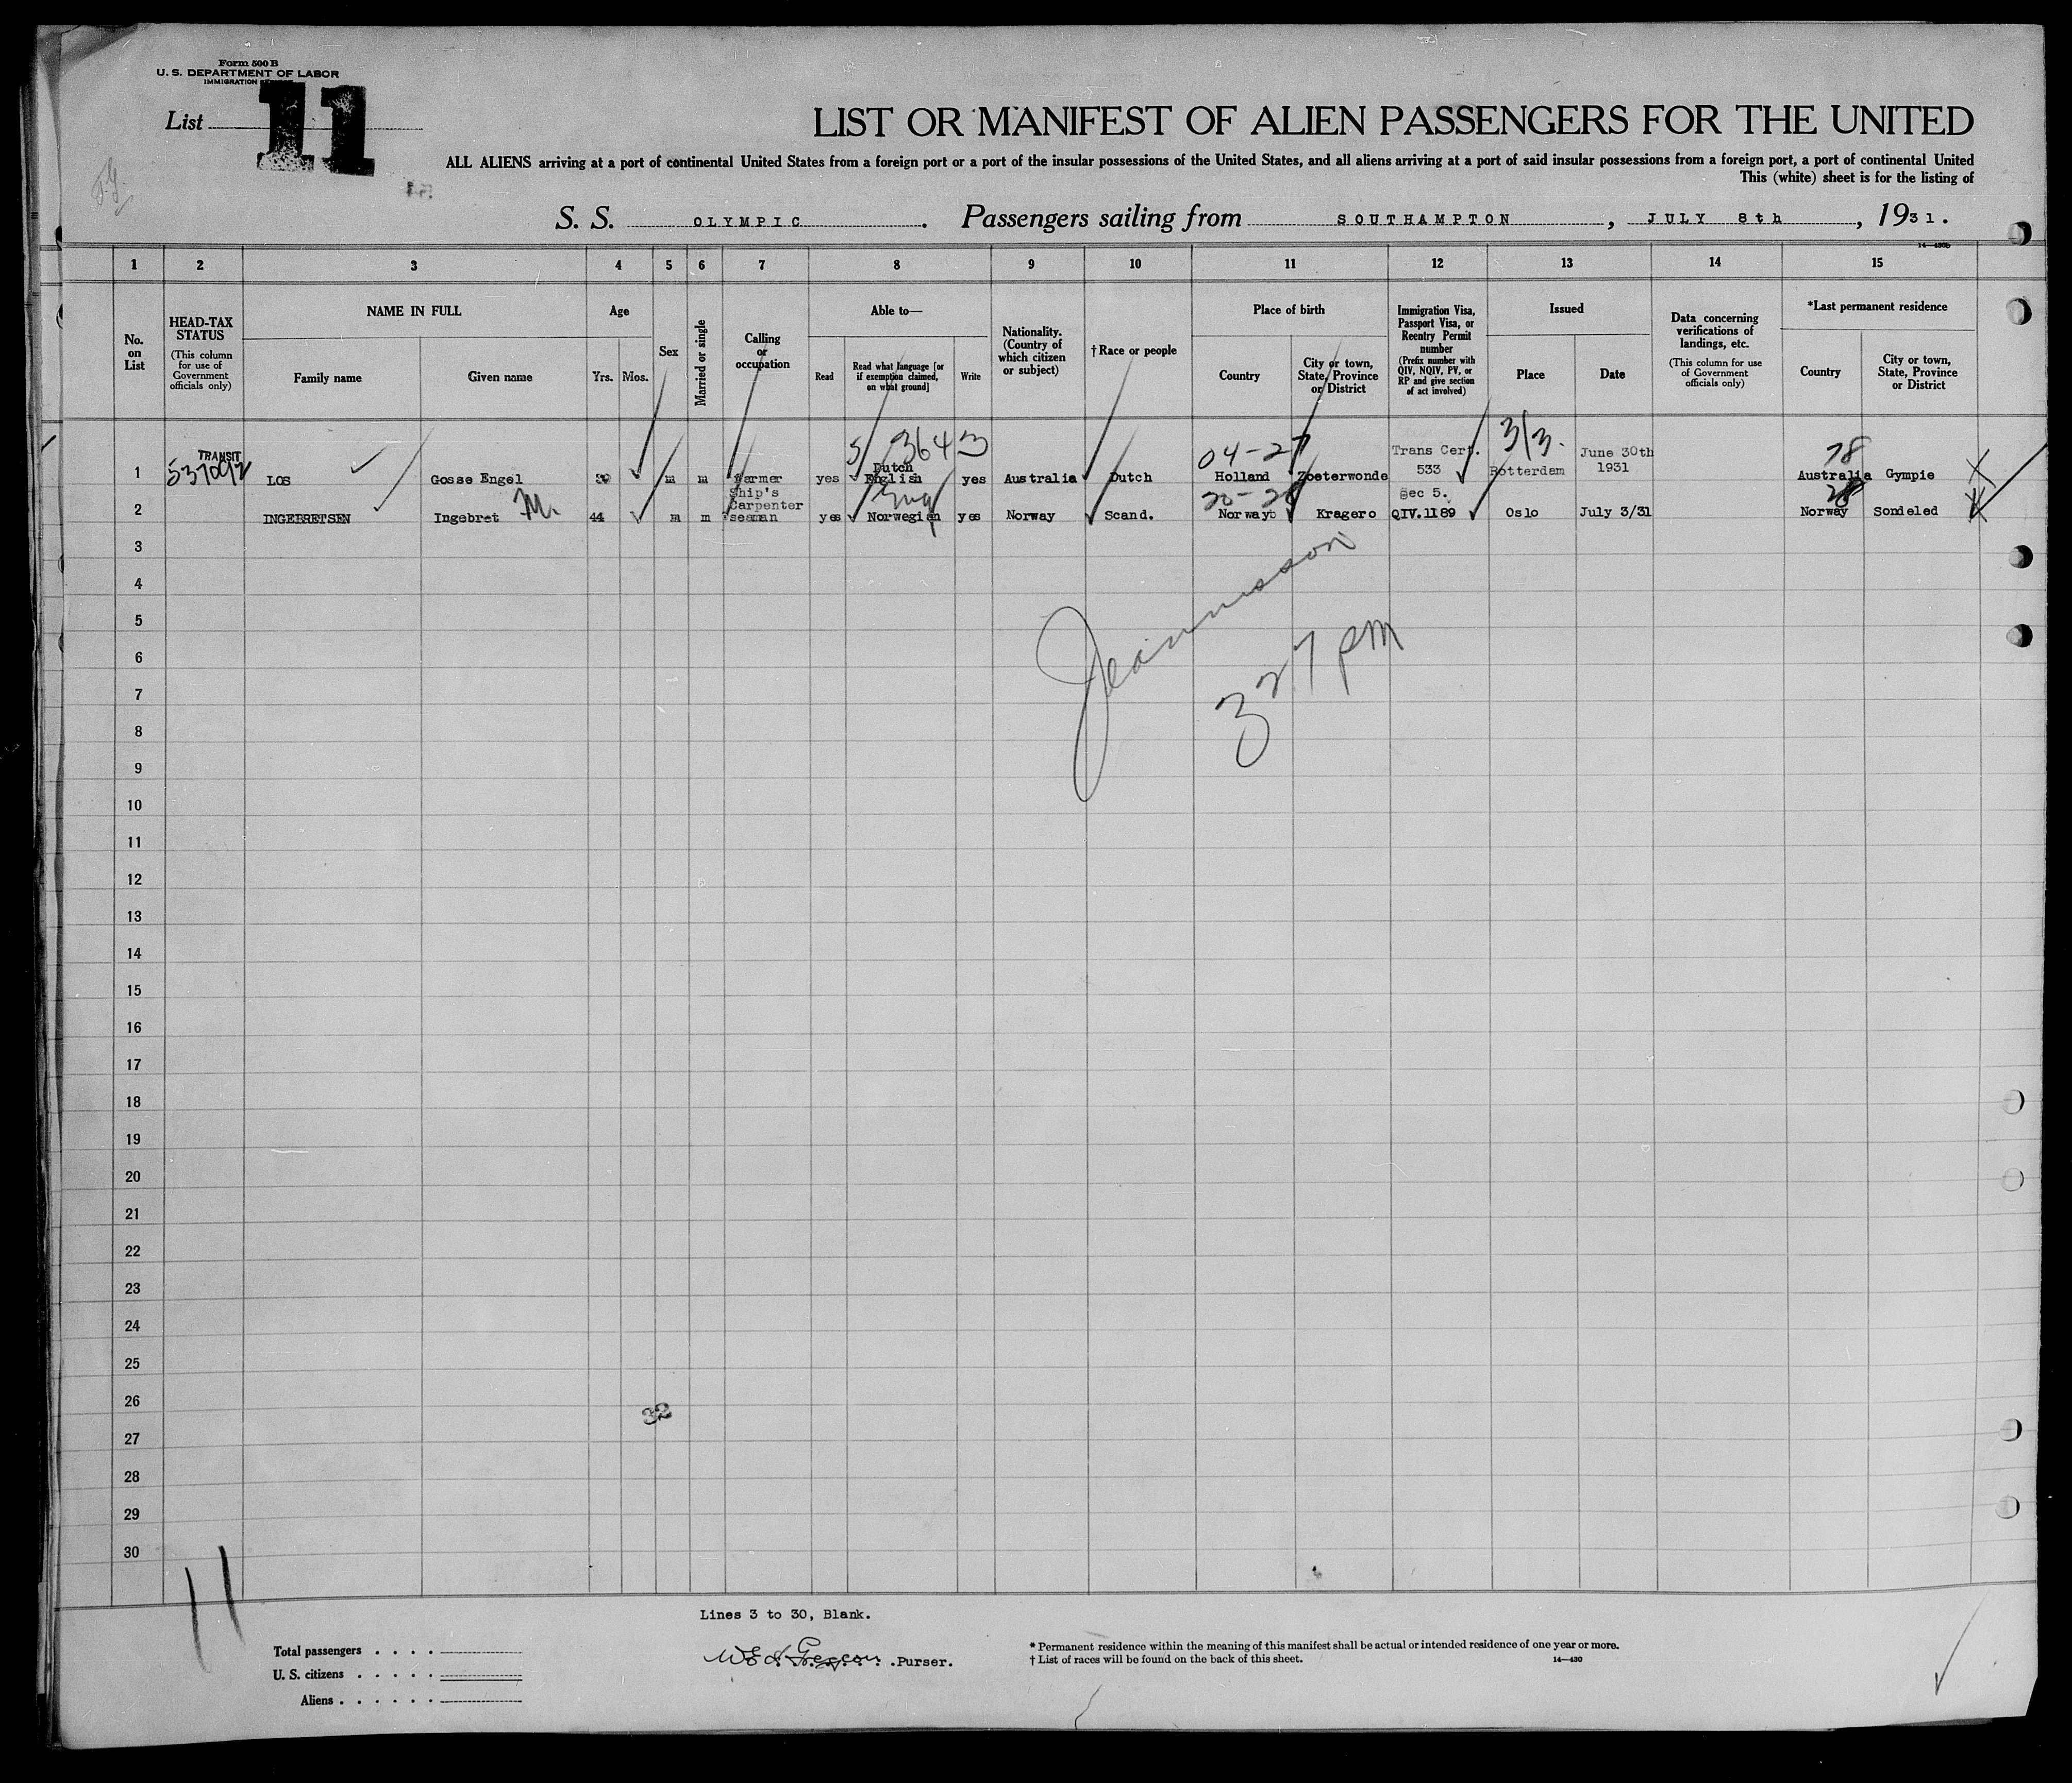 Form 500 B
U. S. DEPARTMENT OF LABOR
IMMIGRATION
List 11
LIST OR MANIFEST OF ALIEN PASSENGERS FOR THE UNITED
ALL ALIENS arriving at a port of continental United States from a foreign port or a port of the insular possessions of the United States, and all aliens arriving at a port of said insular possessions from a foreign port, a port of continental United
This (white) sheet is for the listing of
S. S. OLYMPIC. Passengers sailing from SOUTHAMPTON, JULY 8th, 1931.
1 2 3 4 5 6 7 8 9 10 11 12 13 14 15
No. on List
HEAD-TAX STATUS (This column for use of Government officials only)
NAME IN FULL
Family name
Given name
Age
Yrs. Mos.
Sex
Married or single
Calling or occupation
Able to—
Read
Read what language [or if exemption claimed, on what ground]
Write
Nationality. (Country of which citizen or subject)
† Race or people
Place of birth
Country
City or town, State, Province or District
Immigration Visa, Passport Visa, or Reentry Permit number (Prefix number with QIV, NQIV, PV, or RP and give section of act involved)
Issued
Place
Date
Data concerning verifications of landings, etc. (This column for use of Government officials only)
*Last permanent residence
Country
City or town, State, Province or District
5 3643 04-27 3/3. 78
1 TRANSIT 537092 LOS Gosse Engel 39 m m farmer yes Dutch English yes Australia Dutch Holland Zoeterwonde Trans Cert. 533 Sec 5. Rotterdam June 30th 1931 Australia Gympie
20-28 28
2 INGEBRETSEN Ingebret M. 44 m m Ship's Carpenter seaman yes Eng Norwegian yes Norway Scand. Norway Kragero QIV.1189 Oslo July 3/31 Norway Sondeled
3
4
5
6
7
8
9
10
11
12
13
14
15
16
17
18
19
20
21
22
23
24
25
26
27
28
29
30
327 pm
32
11
Lines 3 to 30, Blank.
Total passengers
U. S. citizens
Aliens
Purser.
* Permanent residence within the meaning of this manifest shall be actual or intended residence of one year or more.
† List of races will be found on the back of this sheet.
14—430